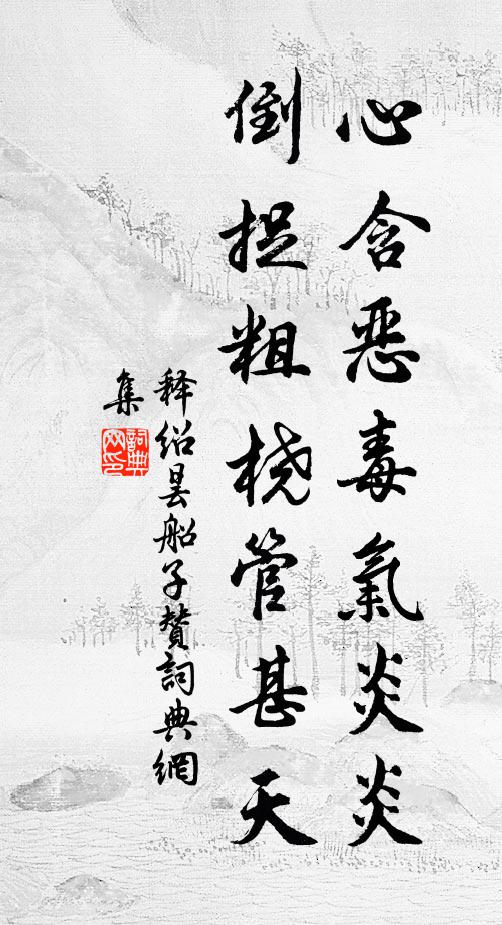 心含恶毒氣炎炎
倒捉粗桡管甚天
释绍昙船子赞詞典網
集
詞典
网印